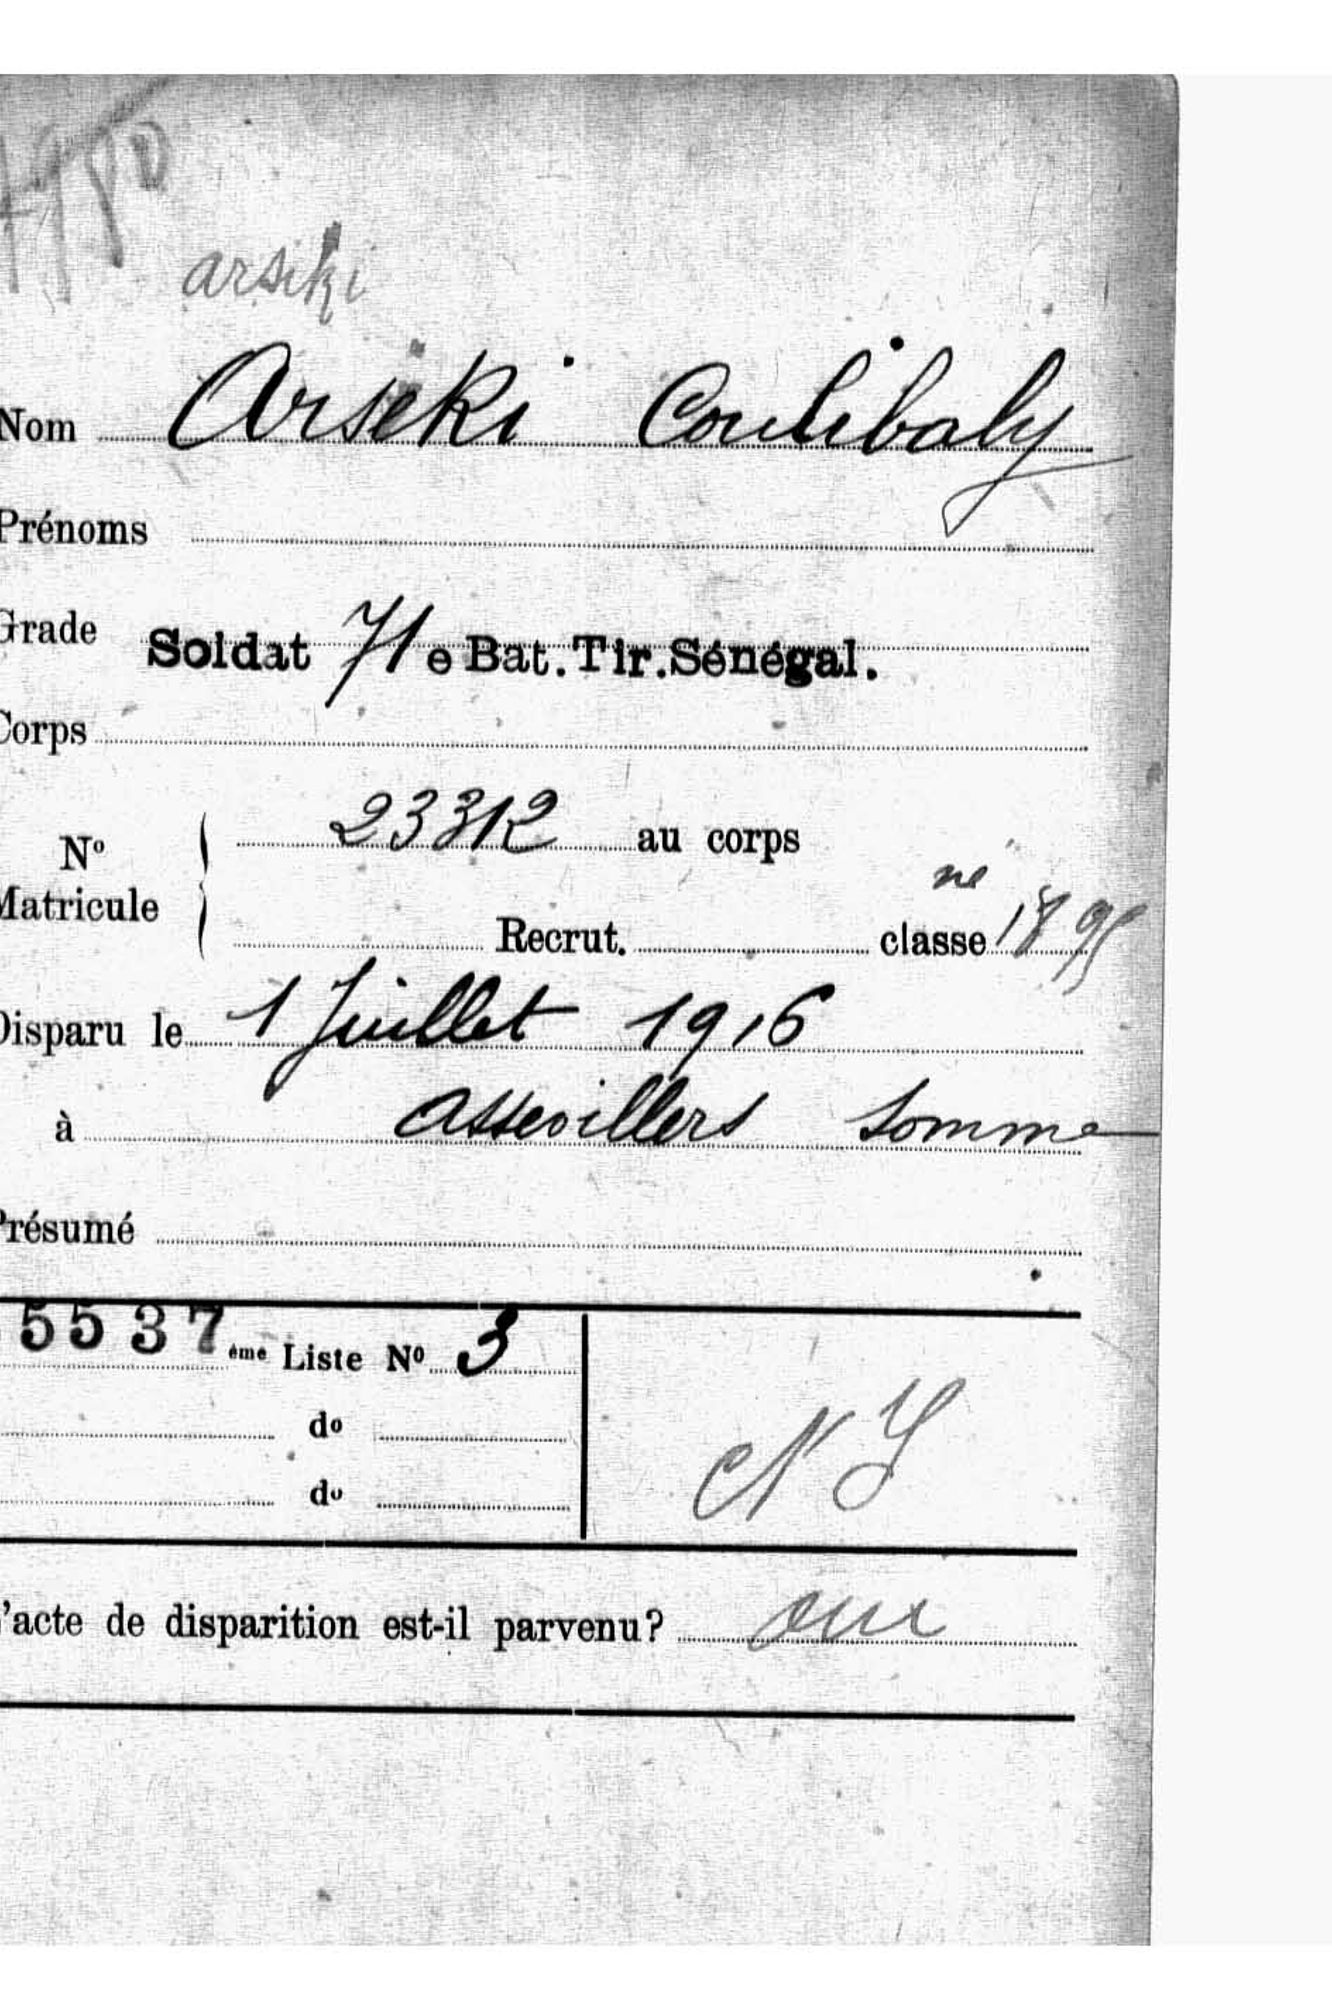 arsiki
Nom Arseki Coulibaly
Prénoms
Grade Soldat 71e Bat.Tir.Sénégal.
Corps
No
Matricule
23312 au corps
né
Recrut. classe 1895
Disparu le 1 Juillet 1916
à Assevillers Somme
Présumé
5537ème Liste No 3
do
do
N
l'acte de disparition est-il parvenu? oui